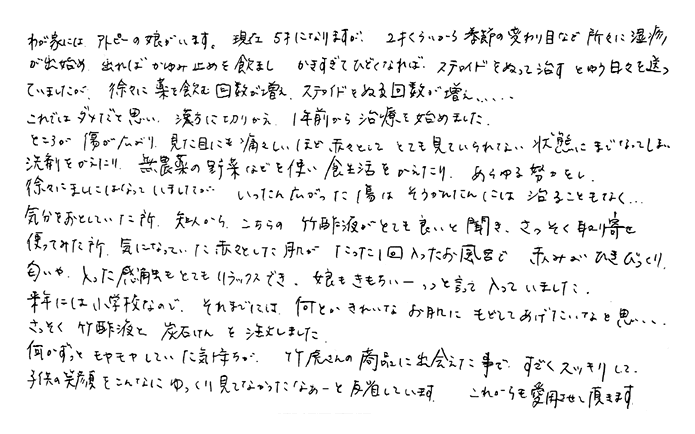 わが家には、アトピーの娘がいます。現在 5才になりますが、2才くらいから季節の変わり目など所々に湿疹
が出始め、出ればかゆみ止めを飲まし かきすぎてひどくなれば、ステロイドをぬって治すとゆう日々を送っ
ていましたが、徐々に薬を飲む回数が増え、ステロイドをぬる回数が増え、、、、、
これではダメだと思い、漢方に切りかえ、1年前から治療を始めました。
ところが 傷が広がり、見た目にも痛々しいほど赤々として とても見ていられない状態にまでなってしまい
洗剤をかえたり、無農薬の野菜などを使い食生活をかえたり、あらゆる努力をし、
徐々にましにはなっていしましたが いったん広がった傷は そうかんたんには治ることもなく…
気分をおとしていた所、知人から、こちらの竹酢液がとても良いと聞き、さっそく取り寄せ
使ってみた所、気になっていた赤々とした肌が たった1回入ったお風呂で 赤みがひきびっくり。
匂いや、入った感触もとてもリラックスでき、娘もきもちいーっっと言って入っていました。
来年には小学校なので、それまでには、何とかきれいなお肌にもどしてあげたいなと思い、、、
さっそく竹酢液と 炭石けんを注文しました。
何かずっとモヤモヤしていた気持ちが、竹虎さんの商品に出会えた事で、すごくスッキリして、
子供の笑顔をこんなにゆっくり見てなかったなぁーと反省しています。 これからも愛用させて頂きます。